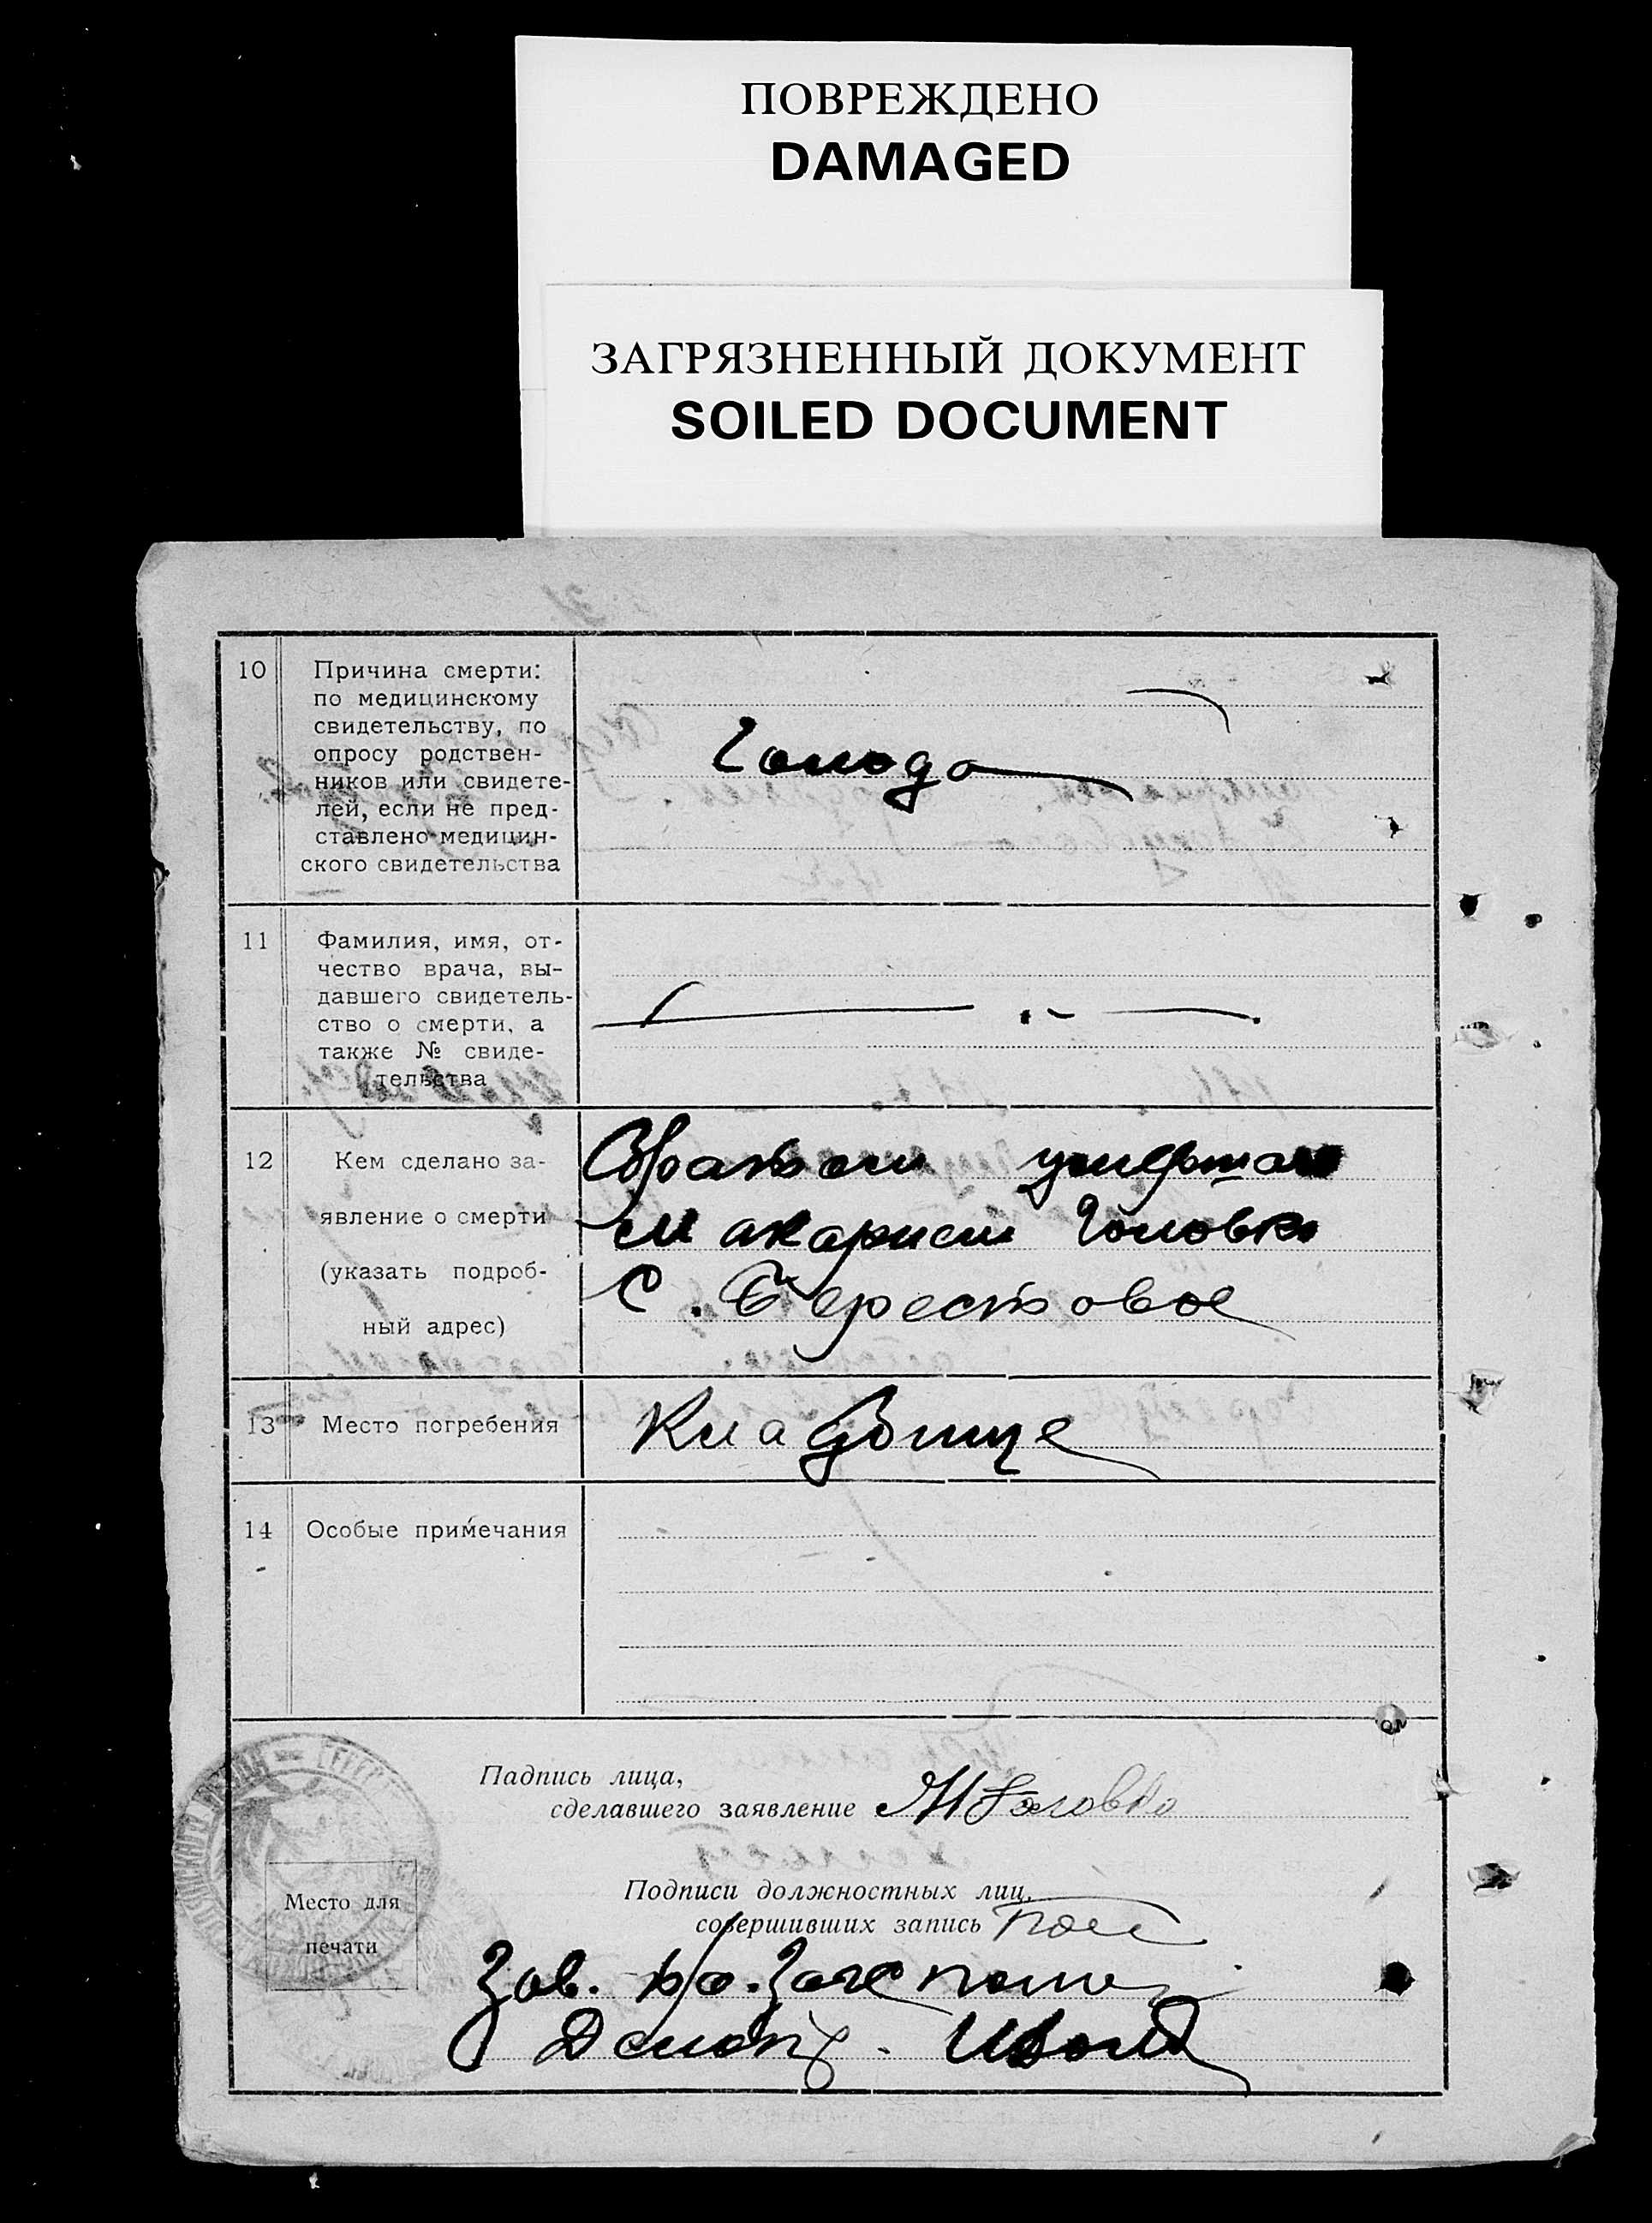 ПОВРЕЖДЕНО
DAMAGED
ЗАГРЯЗНЕННЫЙ ДОКУМЕНТ
SOILED DOCUMENT
10
Причина смерти:
по медицинскому
свидетельству, по
опросу родствен-
ников или свидете-
лей, если не пред-
ставлено медицин-
ского свидетельства
Голода
11
Фамилия, имя, от-
чество врача, вы-
давшего свидетель-
ство о смерти, а
также № свиде-
тельства
12
Кем сделано за-
явление о смерти
(указать подроб-
ный адрес)
Братом
Макарием Головко
С. Берестовое
13
Место погребения
Кладбище
14
Особые примечания
Падпись лица,
сделавшего заявление М Головко
Место для
печати
Подписи должностных лиц,
совершивших запись
Зав.